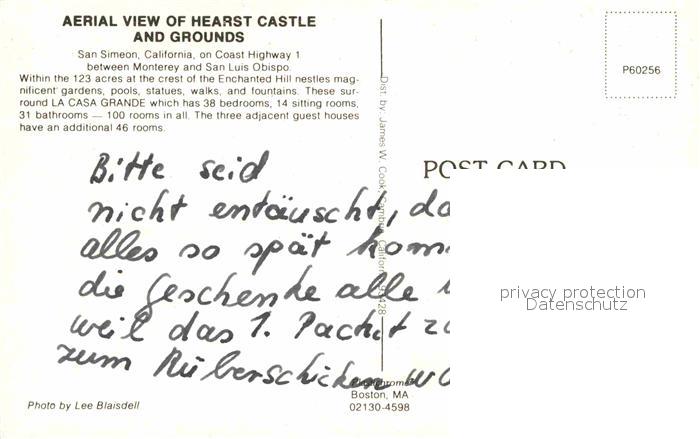 AERIAL VIEW OF HEARST CASTLE
AND GROUNDS
San Simeon, California, on Coast Highway 1
between Monterey and San Luis Obispo.
Within the 123 acres at the crest of the Enchanted Hill nestles mag-
nificent gardens, pools, statues, walks, and fountains. These sur-
round LA CASA GRANDE which has 38 bedrooms, 14 sitting rooms,
31 bathrooms — 100 rooms in all. The three adjacent guest houses
have an additional 46 rooms.
P60256
Dist. by: James W. Cook, Cambria, California 93428
POST CARD
Bitte seid
nicht entäuscht, da
alles so spät kom
die Geschenke alle
weil das 1. Packet
zum Rüberschicken
privacy protection
Datenschutz
Boston, MA
02130-4598
Photo by Lee Blaisdell